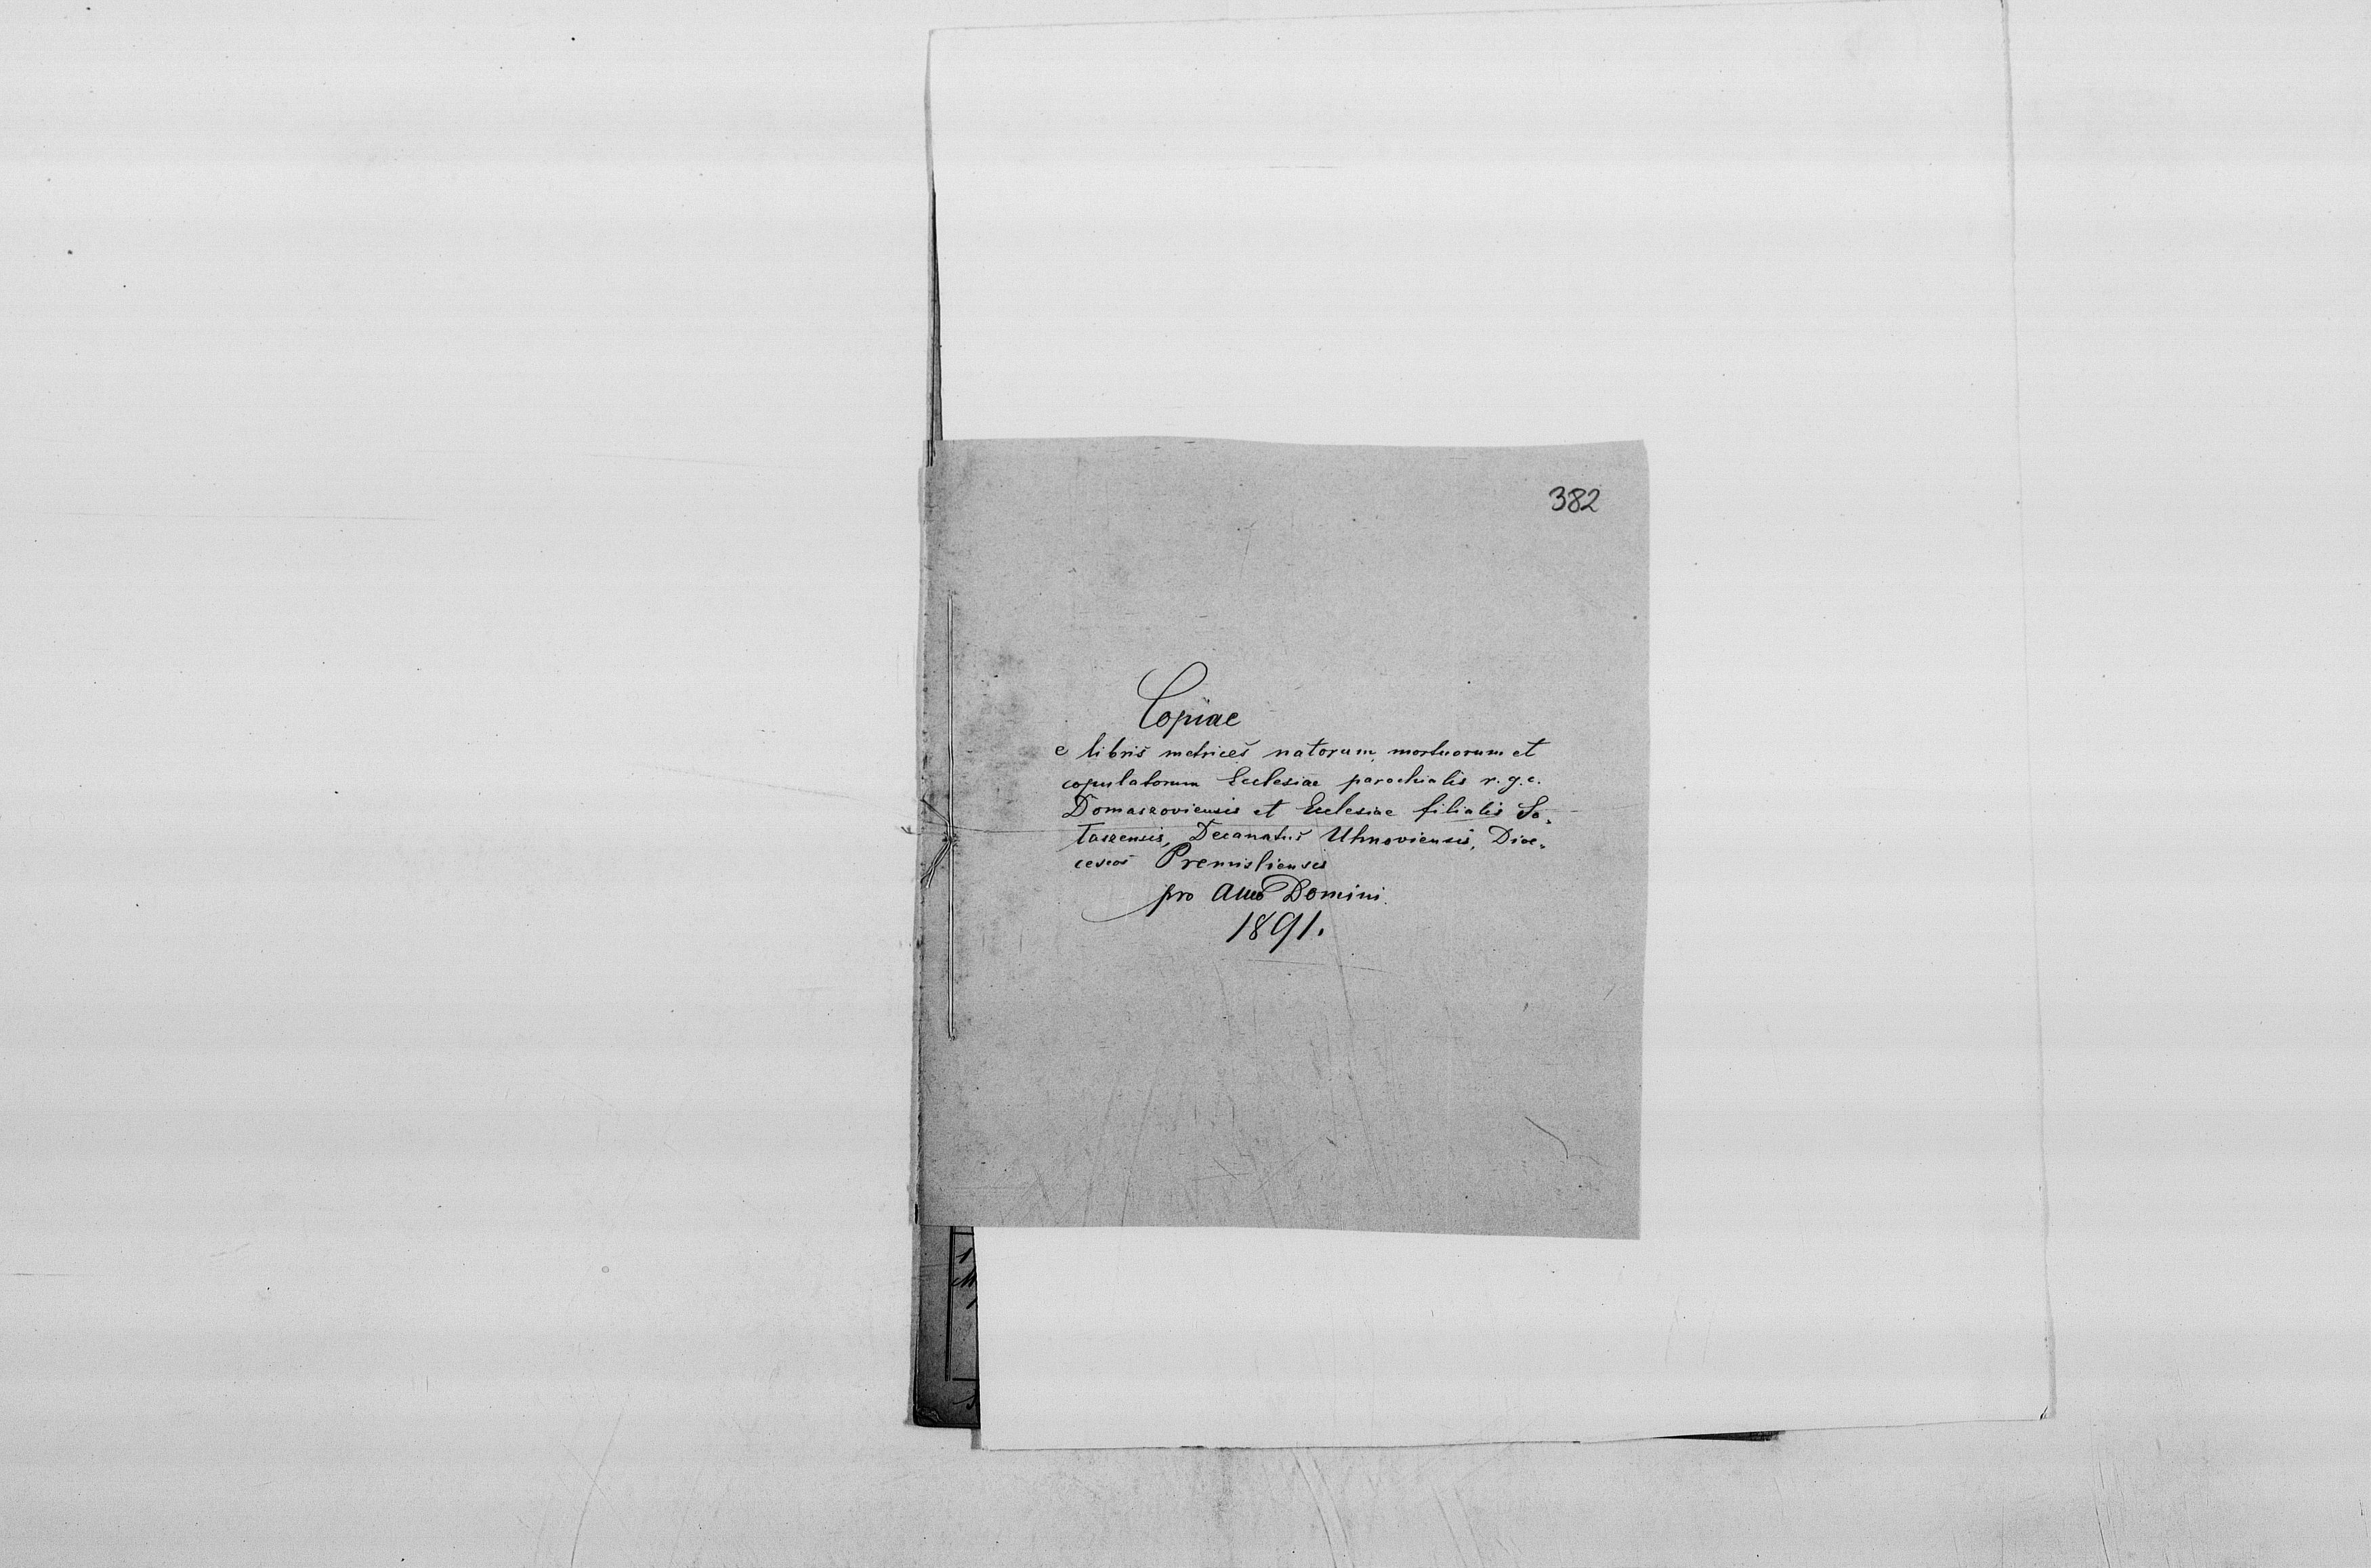 382
Copiae
e libris metrices natorum, mortuorum et
copulatorum Ecclesiae parochialis r. g. c.
Domaszoviensis et Ecclesiae filialis Sa-
taszensis, Decanatus Uhnoviensis, Dioe-
ceseos Premisliensis
pro Anno Domini
1891.